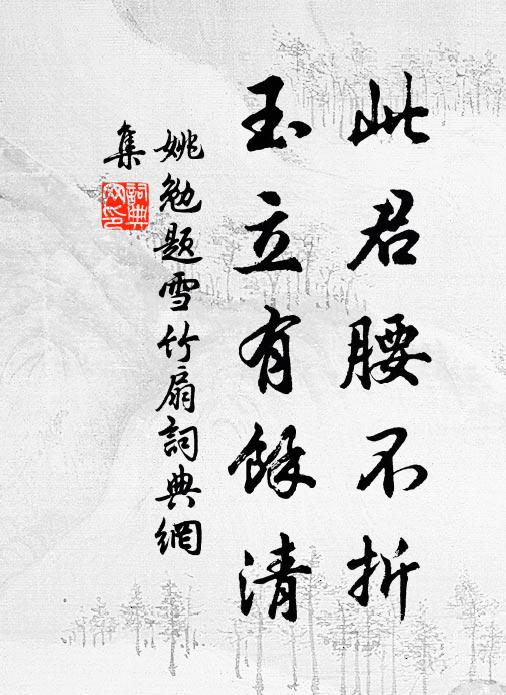 此君腰不折
玉立有餘清
姚勉題雪竹扇詞典網
集
詞典网印